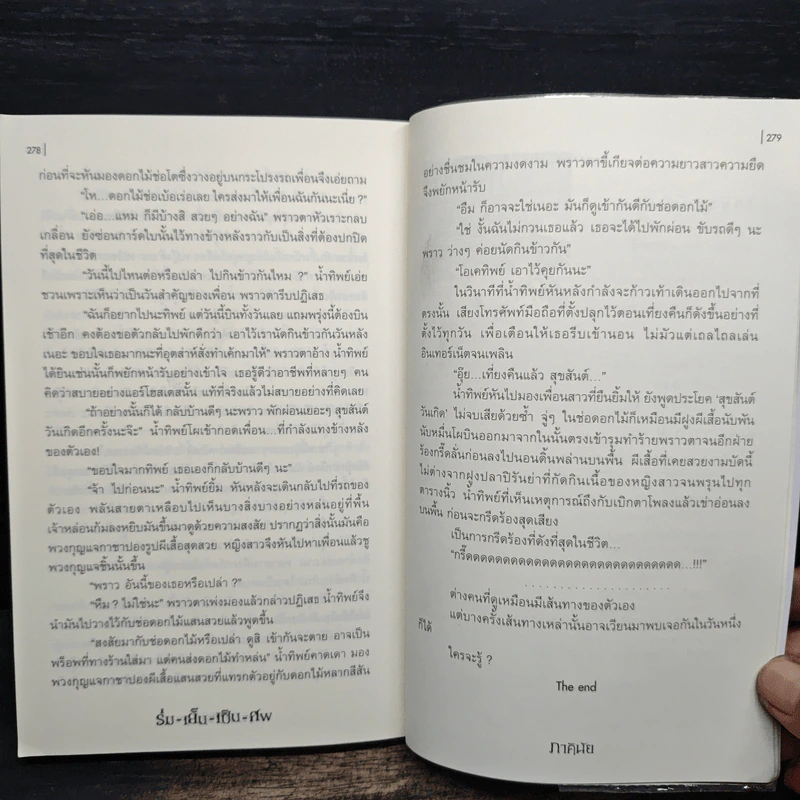 278
ก่อนที่จะหันมองดอกไม้ช่อโตซึ่งวางอยู่บนกระโปรงรถเพื่อนจึงเอ่ยถาม
“โห...ดอกไม้ช่อเบ้อเร่อเลย ใครส่งมาให้เพื่อนฉันกันนะเนี่ย ?”
“เอ่อ...แหม ก็มีบ้างสิ สวยๆ อย่างฉัน” พราวตาหัวเราะกลบ
เกลื่อน ยังซ่อนการ์ดใบนั้นไว้ทางข้างหลังราวกับเป็นสิ่งที่ต้องปกปิด
ที่สุดในชีวิต
“วันนี้ไปไหนต่อหรือเปล่า ไปกินข้าวกันไหม ?” น้ำทิพย์เอ่ย
ชวนเพราะเห็นว่าเป็นวันสำคัญของเพื่อน พราวตารีบปฏิเสธ
“ฉันก็อยากไปนะทิพย์ แต่วันนี้บินทั้งวันเลย แถมพรุ่งนี้ต้องบิน
เช้าอีก คงต้องขอตัวกลับไปพักดีกว่า เอาไว้เรานัดกินข้าวกันวันหลัง
เนอะ ขอบใจเธอมากนะที่อุตส่าห์สั่งทำเค้กมาให้” พราวตาอ้าง น้ำทิพย์
ได้ยินเช่นนั้นก็พยักหน้ารับอย่างเข้าใจ เธอรู้ดีว่าอาชีพที่หลายๆ คน
คิดว่าสบายอย่างแอร์โฮสเตสนั้น แท้ที่จริงแล้วไม่สบายอย่างที่คิดเลย
“ถ้าอย่างนั้นก็ได้ กลับบ้านดีๆ นะพราว พักผ่อนเยอะๆ สุขสันต์
วันเกิดอีกครั้งนะจ๊ะ” น้ำทิพย์โผเข้ากอดเพื่อน...ที่กำลังแทงข้างหลัง
ของตัวเอง!
“ขอบใจมากทิพย์ เธอเองก็กลับบ้านดีๆ นะ”
“จ้า ไปก่อนนะ” น้ำทิพย์ยิ้ม หันหลังจะเดินกลับไปที่รถของ
ตัวเอง พลันสายตาเหลือบไปเห็นบางสิ่งบางอย่างหล่นอยู่ที่พื้น
เจ้าหล่อนก้มลงหยิบมันขึ้นมาดูด้วยความสงสัย ปรากฏว่าสิ่งนั้นมันคือ
พวงกุญแจกาชาปองรูปผีเสื้อสุดสวย หญิงสาวจึงหันไปหาเพื่อนแล้วชู
พวงกุญแจชิ้นนั้นขึ้น
“พราว อันนี้ของเธอหรือเปล่า ?”
“หืม ? ไม่ใช่นะ” พราวตาเพ่งมองแล้วกล่าวปฏิเสธ น้ำทิพย์จึง
นำมันไปวางไว้กับช่อดอกไม้แสนสวยแล้วพูดขึ้น
“สงสัยมากับช่อดอกไม้หรือเปล่า ดูสิ เข้ากันจะตาย อาจเป็น
พร็อพที่ทางร้านใส่มา แต่คนส่งดอกไม้ทำหล่น” น้ำทิพย์คาดเดา มอง
พวงกุญแจกาชาปองผีเสื้อแสนสวยที่แทรกตัวอยู่กับดอกไม้หลากสีสัน
ร่ม-เย็น-เป็น-ศพ
279
อย่างชื่นชมในความงดงาม พราวตาขี้เกียจต่อความยาวสาวความยืด
จึงพยักหน้ารับ
“อืม ก็อาจจะใช่เนอะ มันก็ดูเข้ากันดีกับช่อดอกไม้”
“ใช่ งั้นฉันไม่กวนเธอแล้ว เธอจะได้ไปพักผ่อน ขับรถดีๆ นะ
พราว ว่างๆ ค่อยนัดกินข้าวกัน”
“โอเคทิพย์ เอาไว้คุยกันนะ”
ในวินาทีที่น้ำทิพย์หันหลังกำลังจะก้าวเท้าเดินออกไปจากที่
ตรงนั้น เสียงโทรศัพท์มือถือที่ตั้งปลุกไว้ตอนเที่ยงคืนก็ดังขึ้นอย่างที่
ตั้งไว้ทุกวัน เพื่อเตือนให้เธอรีบเข้านอน ไม่มัวแต่เถลไถลเล่น
อินเทอร์เน็ตจนเพลิน
“อุ๊ย...เที่ยงคืนแล้ว สุขสันต์...”
น้ำทิพย์หันไปมองเพื่อนสาวที่ยืนยิ้มให้ ยังพูดประโยค ‘สุขสันต์
วันเกิด’ ไม่จบเสียด้วยซ้ำ จู่ๆ ในช่อดอกไม้ก็เหมือนมีฝูงผีเสื้อนับพัน
นับหมื่นโผบินออกมาจากในนั้นตรงเข้ารุมทำร้ายพราวตาจนอีกฝ่าย
ร้องกรี๊ดลั่นก่อนลงไปนอนดิ้นพล่านบนพื้น ผีเสื้อที่เคยสวยงามบัดนี้
ไม่ต่างจากฝูงปลาปิรันย่าที่กัดกินเนื้อของหญิงสาวจนพรุนไปทุก
ตารางนิ้ว น้ำทิพย์ที่เห็นเหตุการณ์ถึงกับเบิกตาโพลงแล้วเข่าอ่อนลง
บนพื้น ก่อนจะกรีดร้องสุดเสียง
เป็นการกรีดร้องที่ดังที่สุดในชีวิต...
“กรี๊ดดดดดดดดดดดดดดดดดดดดดดดดดดดดดด...!!!”
. . . . . . . . . . . . . .
ต่างคนที่ดูเหมือนมีเส้นทางของตัวเอง
แต่บางครั้งเส้นทางเหล่านั้นอาจเวียนมาพบเจอกันในวันหนึ่ง
ก็ได้
ใครจะรู้ ?
The end
ภาคินัย